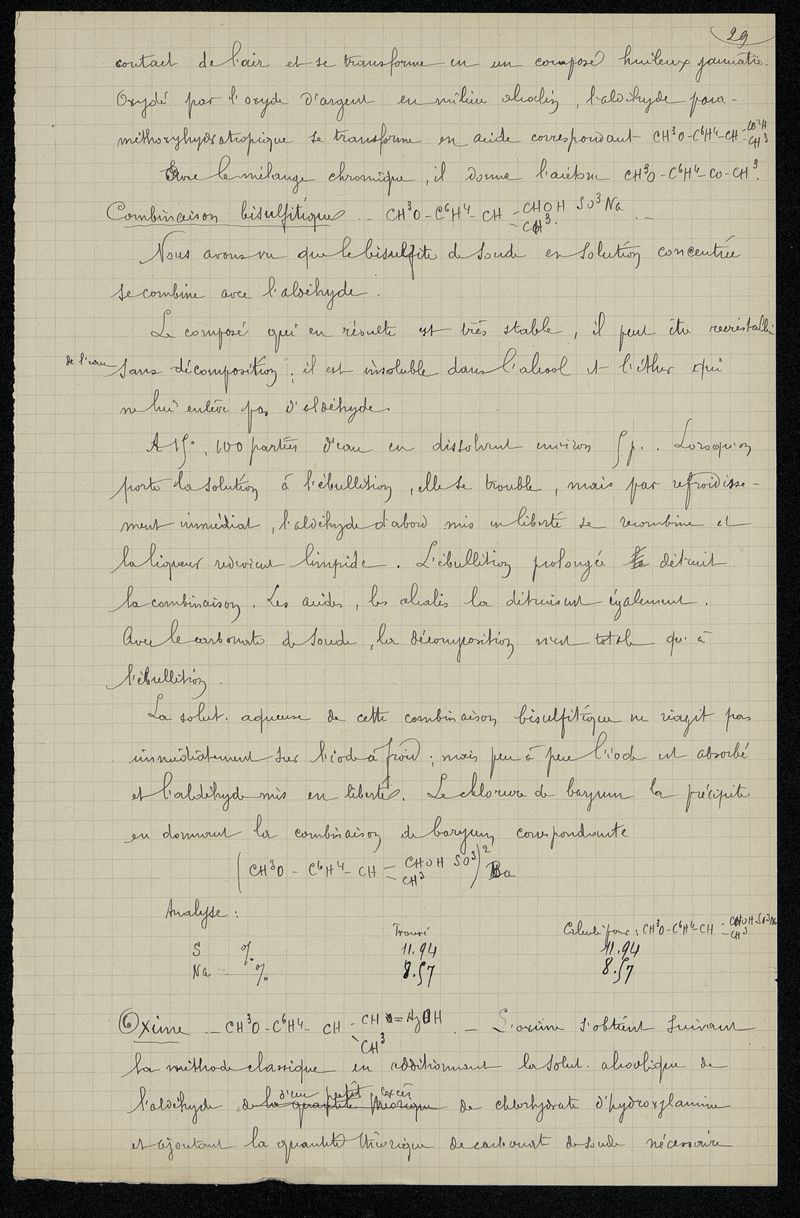 29
contact de l'air et se transforme en un composé huileux jaunâtre.
Oxydé par l'oxyde d'argent en milieu alcalin, l'aldéhyde para-
méthoxyhydratropique se transforme en acide correspondant CH³O-C⁶H⁴-CH-CO²H
-CH³
Avec le mélange chromique, il donne l'acétone CH³O-C⁶H⁴-CO-CH³.
Combinaison bisulfitique. - CH³O-C⁶H⁴-CH-CHOH SO³Na. -
-CH³.
Nous avons vu que le bisulfite de soude en solution concentrée
se combine avec l'aldéhyde.
Le composé qui en résulte est très stable, il peut être recristallisé
de l'eau sans décomposition; il est insoluble dans l'alcool et l'éther qui
ne lui enlève pas d'aldéhyde.
A 15°, 100 parties d'eau en dissolvent environ 5 p.. Lorsqu'on
porte la solution à l'ébullition, elle se trouble, mais par refroidisse-
ment immédiat, l'aldéhyde d'abord mis en liberté se recombine et
la liqueur redevient limpide. L'ébullition prolongée détruit
la combinaison. Les acides, les alcalis la détruisent également.
Avec le carbonate de soude, la décomposition n'est totale qu'à
l'ébullition.
La solut. aqueuse de cette combinaison bisulfitique ne réagit pas
immédiatement sur l'iode à froid; mais peu à peu l'iode est absorbé
et l'aldéhyde mis en liberté. Le chlorure de baryum la précipite
en donnant la combinaison de baryum correspondante
(CH³O - C⁶H⁴- CH = CHOH SO³)² Ba
CH³
Analyse:
Trouvé Calculé pour: CH³O-C⁶H⁴-CH = CHOH SO³Na
-CH³
S % 11.94 11.94
Na % 8.57 8.57
Oxime. - CH³O-C⁶H⁴- CH - CH = AzOH. - L'oxime s'obtient suivant
CH³
la méthode classique en additionnant la solut. alcoolique de
d'un petit excès
l'aldéhyde de la quantité théorique de chlorhydrate d'hydroxylamine
et ajoutant la quantité théorique de carbonate de soude nécessaire